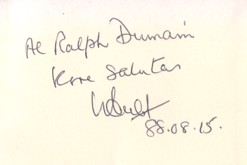 Al Ralph Dumain
Kore salutas
88.08.15.